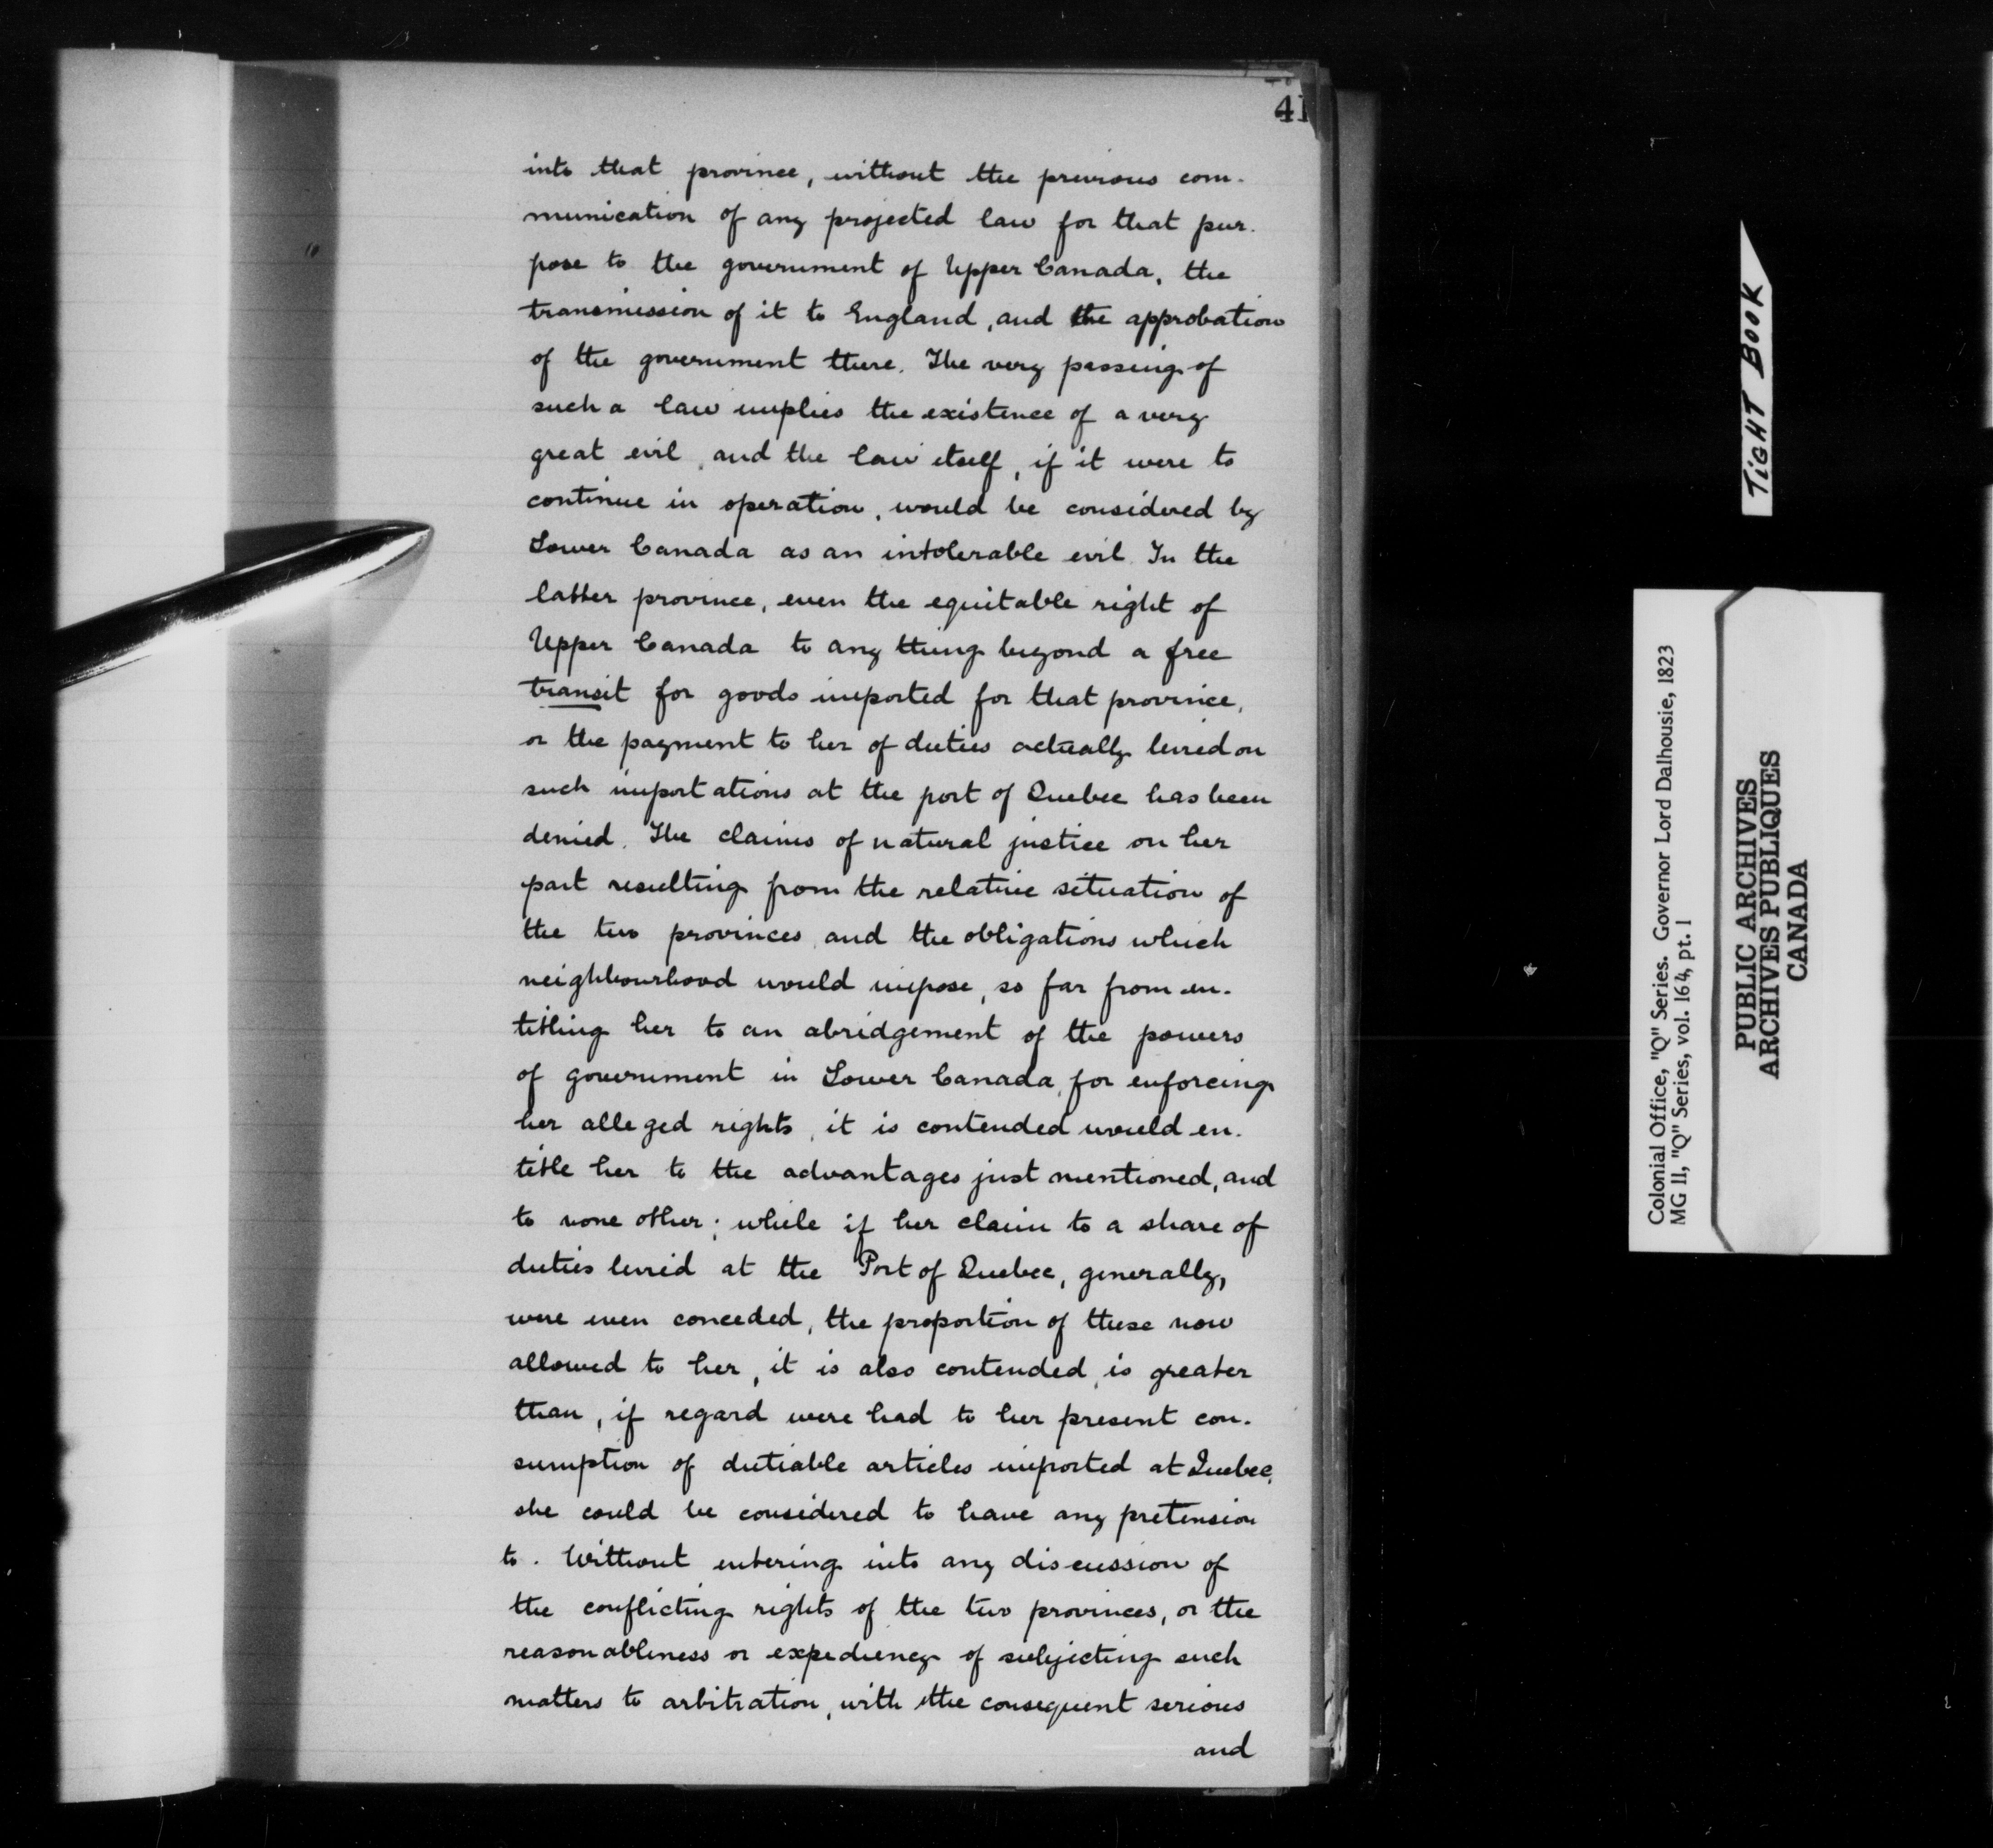 41
into that province, without the previous com-
munication of any projected law for that pur-
pose to the government of Upper Canada, the
transmission of it to England, and the approbation
of the government there. The very passing of
such a law implies the existence of a very
great evil, and the law itself, if it were to
continue in operation, would be considered by
Lower Canada as an intolerable evil. In the
latter province, even the equitable right of
Upper Canada to any thing beyond a free
transit for goods imported for that province,
or the payment to her of duties actually levied on
such importations at the port of Quebec has been
denied. The claims of natural justice on her
part resulting from the relative situation of
the two provinces, and the obligations which
neighbourhood would impose, so far from en-
titling her to an abridgement of the powers
of government in Lower Canada, for enforcing
her alleged rights, it is contended would en-
title her to the advantages just mentioned, and
to none other; while if her claim to a share of
duties levied at the Port of Quebec, generally,
were even conceded, the proportion of these now
allowed to her, it is also contended, is greater
than, if regard were had to her present con-
sumption of dutiable articles imported at Quebec,
she could be considered to have any pretension
to. Without entering into any discussion of
the conflicting rights of the two provinces, or the
reasonableness or expediency of subjecting such
matters to arbitration, with the consequent serious
and
TIGHT BOOK
Colonial Office, "Q" Series. Governor Lord Dalhousie, 1823
MG 11, "Q" Series, vol. 164, pt. 1
PUBLIC ARCHIVES
ARCHIVES PUBLIQUES
CANADA